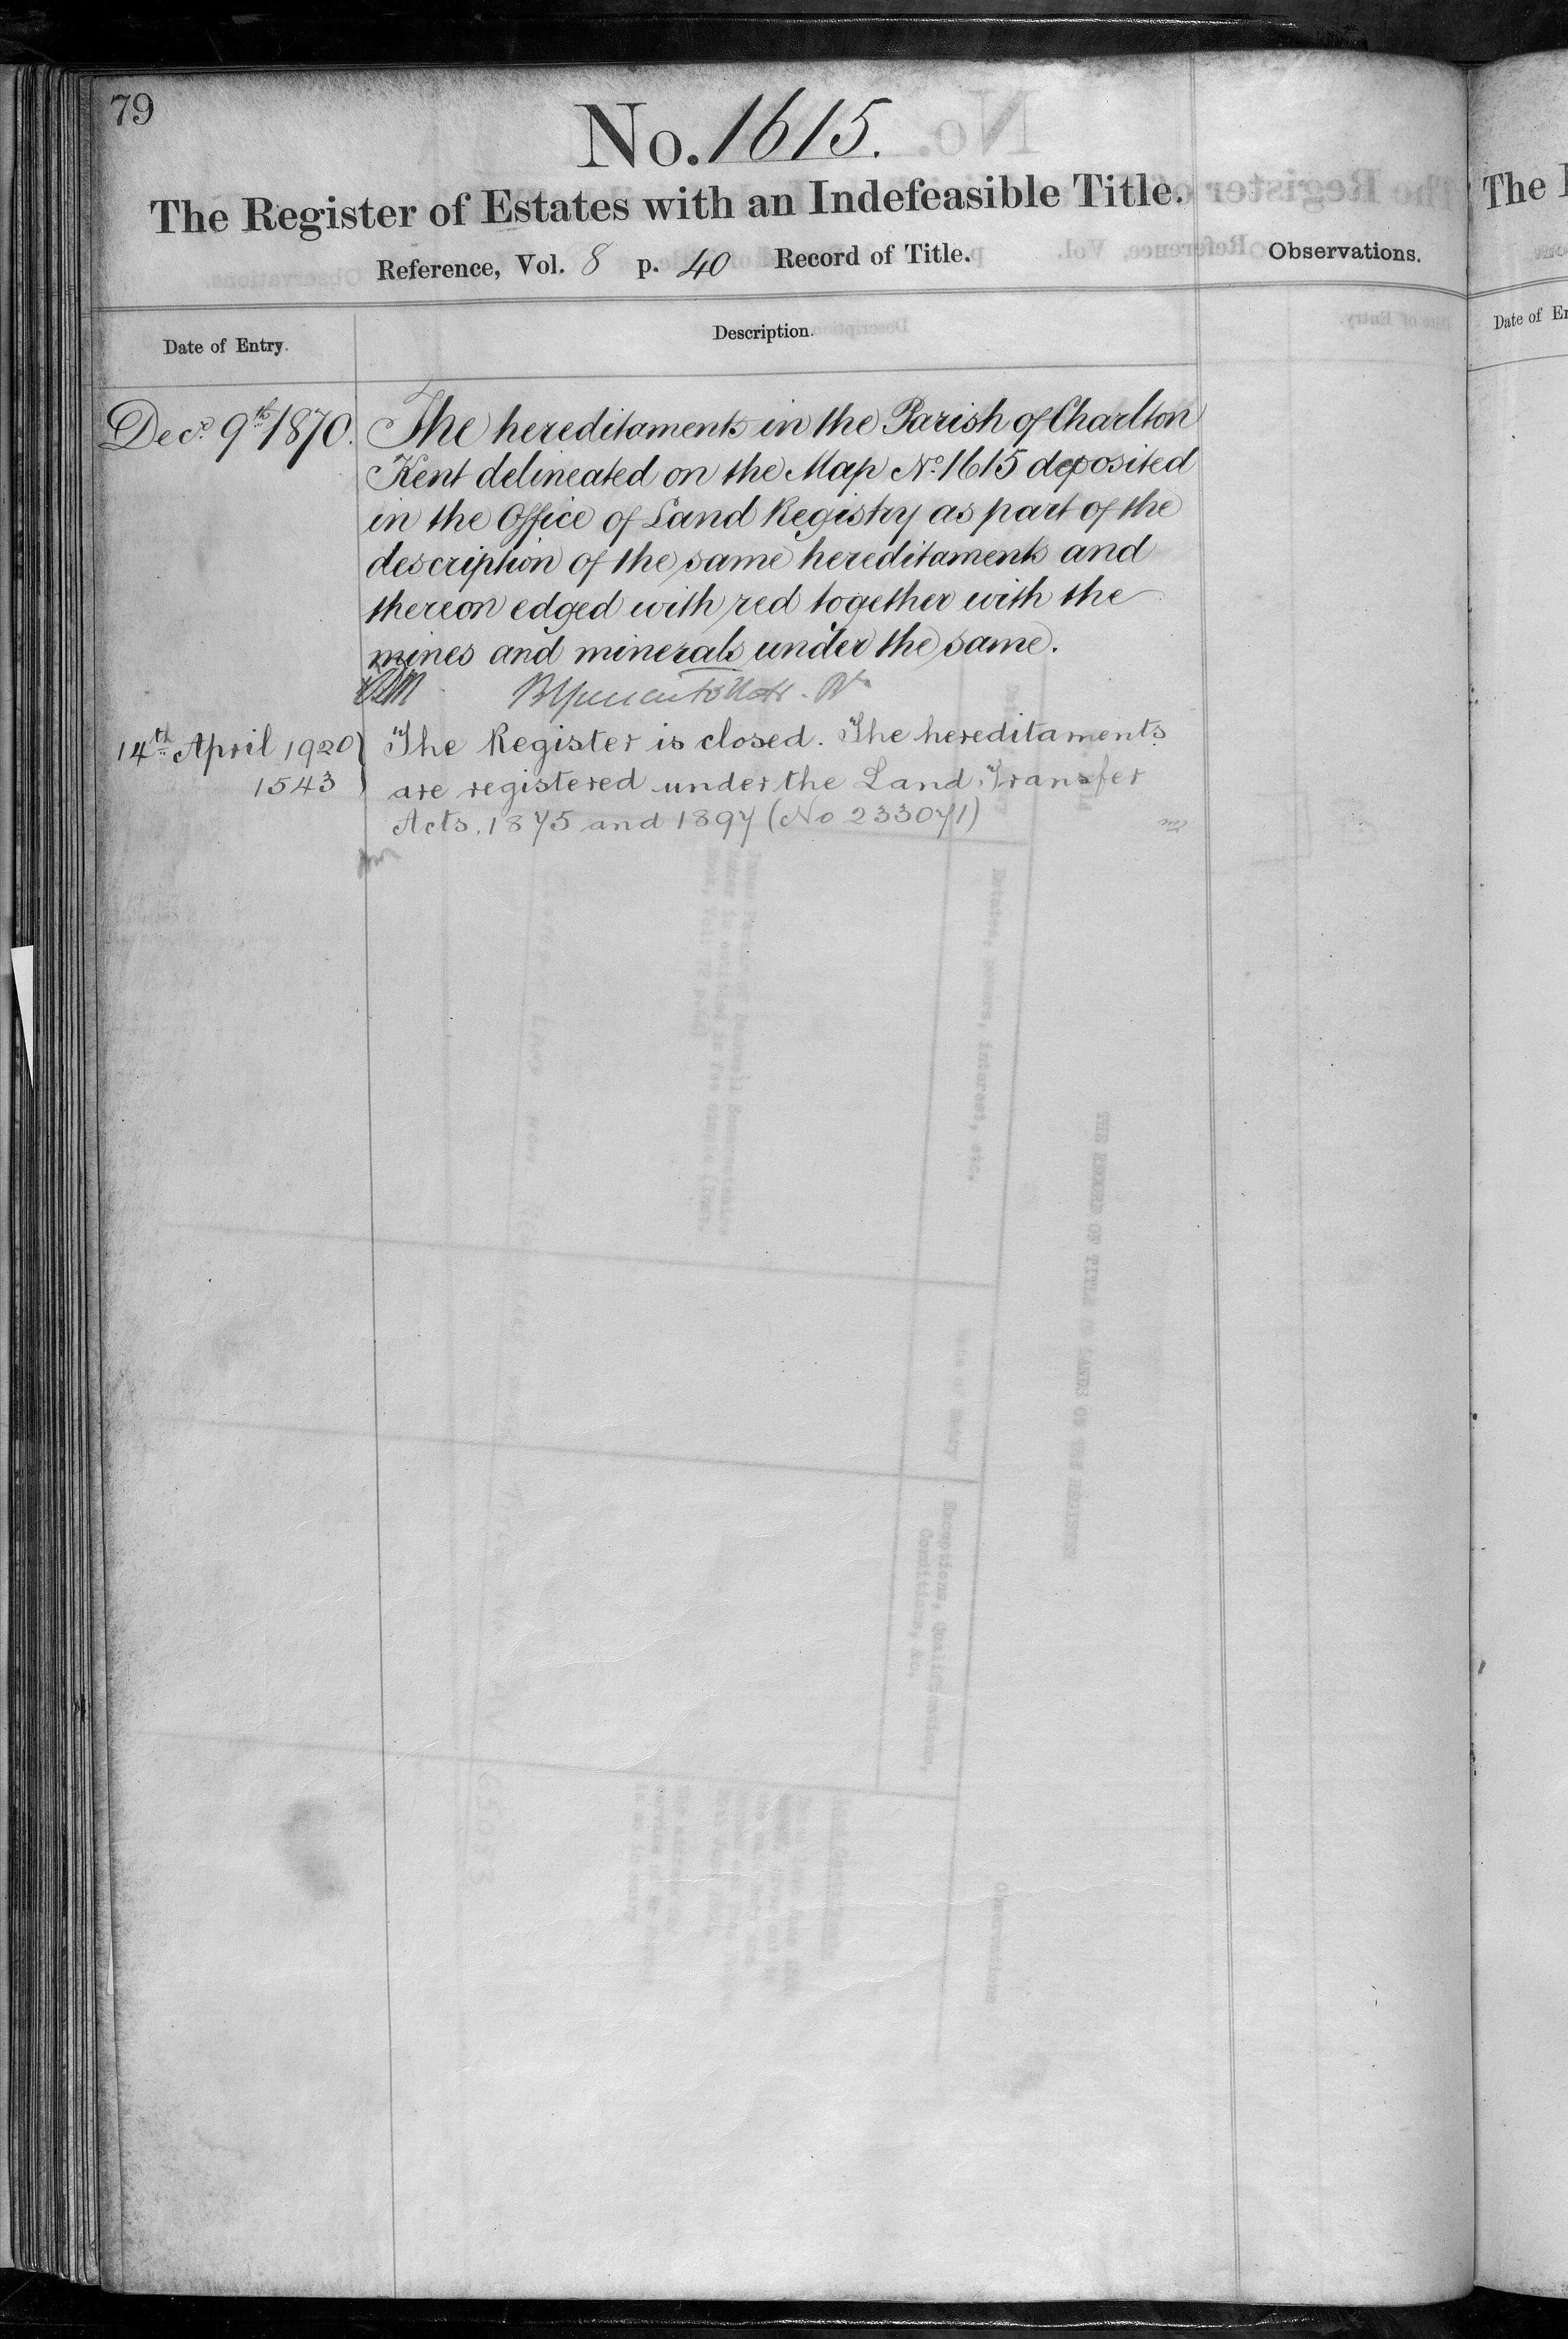 79
No. 1615.
The Register of Estates with an Indefeasible Title.
Reference, Vol. 8 p. 40 Record of Title.
Observations.
Date of Entry.
Description.
Decr. 9th 1870.
The hereditaments in the Parish of Charlton
Kent delineated on the Map No. 1615 deposited
in the Office of Land Registry as part of the
description of the same hereditaments and
thereon edged with red together with the
mines and minerals under the same.
14th April 1920
1543
The Register is closed. The hereditaments
are registered under the Land Transfer
Acts, 1875 and 1897 (No 233071)
The
Date of